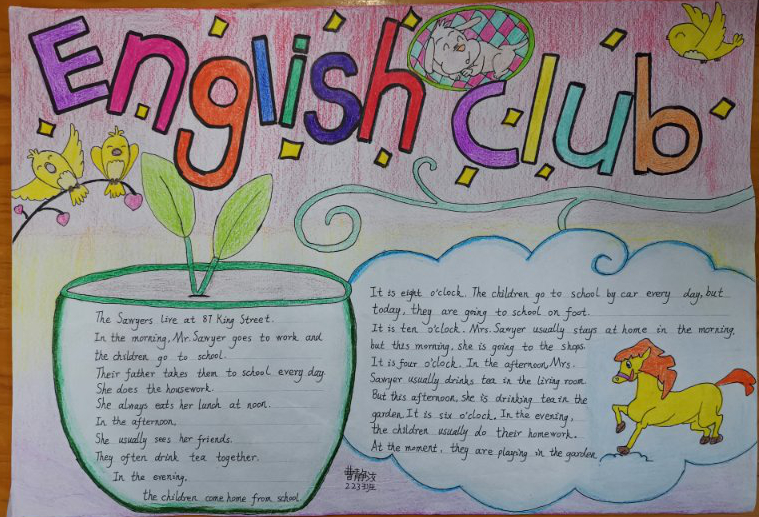 English Club
The Sawyers live at 87 King Street.
In the morning, Mr. Sawyer goes to work and
the children go to school.
Their father takes them to school every day.
She does the housework.
She always eats her lunch at noon.
In the afternoon,
She usually sees her friends.
They often drink tea together.
In the evening,
the children come home from school
It is eight o'clock. The children go to school by car every day, but
today, they are going to school on foot.
It is ten o'clock. Mrs. Sawyer usually stays at home in the morning,
but this morning, she is going to the shops.
It is four o'clock. In the afternoon, Mrs.
Sawyer usually drinks tea in the living room.
But this afternoon, She is drinking tea in the
garden. It is six o'clock. In the evening,
the children usually do their homework.
At the moment, they are playing in the garden.
223班